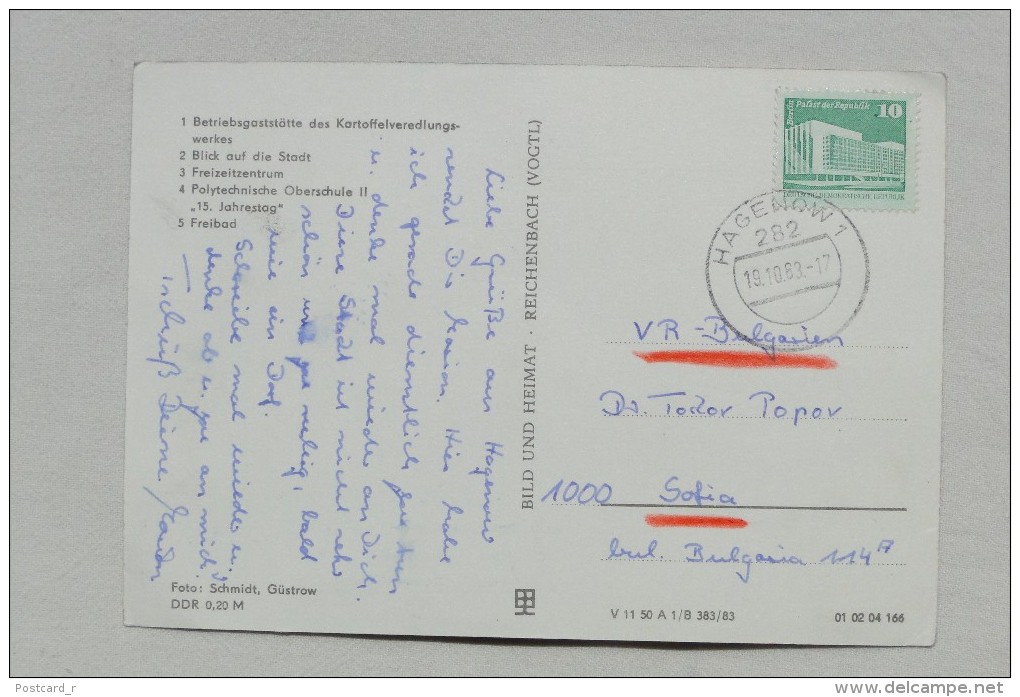 1 Betriebsgaststätte des Kartoffelveredlungs-
werkes
2 Blick auf die Stadt
3 Freizeitzentrum
4 Polytechnische Oberschule II
„15. Jahrestag"
5 Freibad
Liebe Grüße aus Hagenow
sendet Dir Marion. Hier habe
ich gerade dienstlich zu tun
u. denke mal wieder an Dich.
Diese Stadt ist nicht sehr
schön u. ruhig, bald
wie ein Dorf.
Schreibe mal wieder u.
denke ab u. zu an mich!
Tschüß Deine Marion
Foto: Schmidt, Güstrow
DDR 0,20 M
BILD UND HEIMAT · REICHENBACH (VOGTL)
Berlin Palast der Republik 10
DEUTSCHE DEMOKRATISCHE REPUBLIK
HAGENOW 1
282
19.10.83.-17
VR-Bulgarien
Dr. Todor Popov
1000 Sofia
bul. Bulgaria 114A
V 11 50 A 1/B 383/83
01 02 04 166
Postcard_r
www.delcampe.net